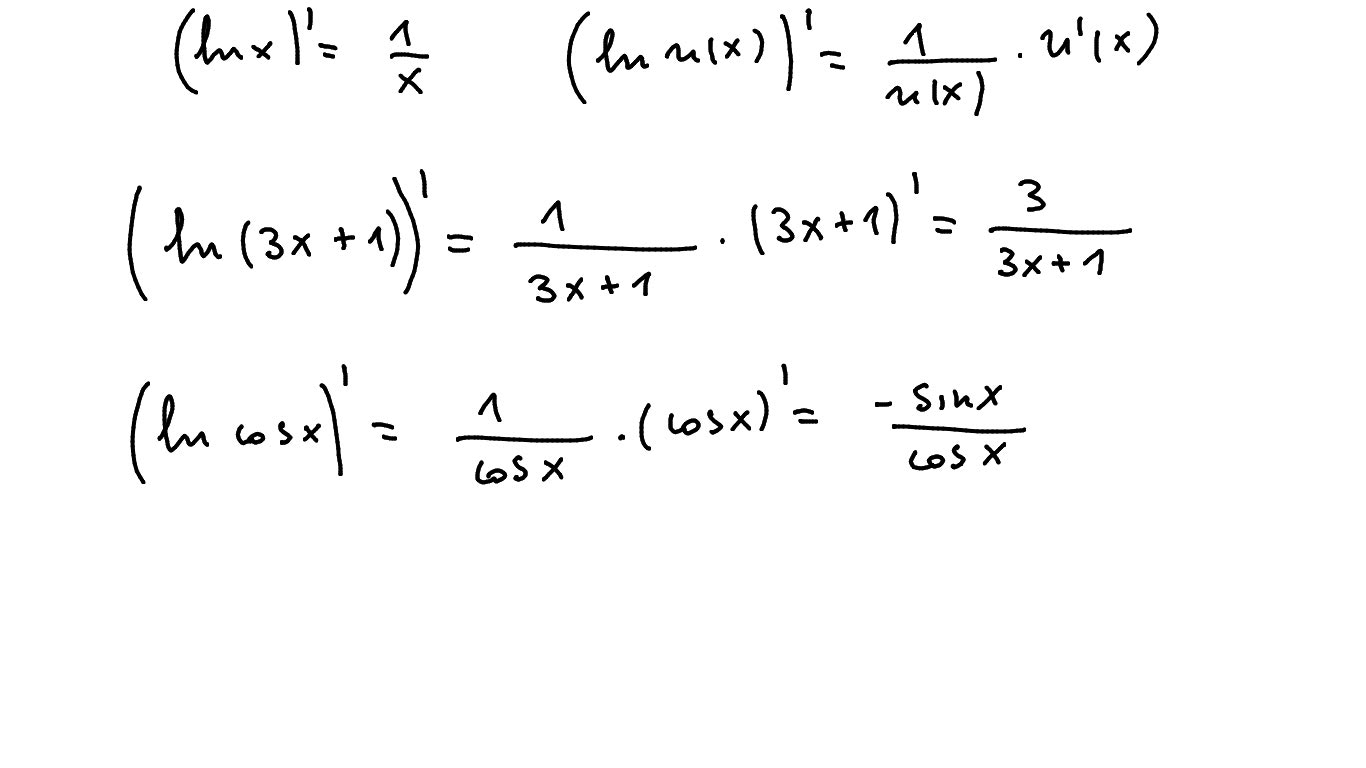 (ln x)' = 1/x (ln u(x))' = 1/u(x) · u'(x)
(ln (3x+1))' = 1/(3x+1) · (3x+1)' = 3/(3x+1)
(ln cos x)' = 1/cos x · (cos x)' = -sin x/cos x